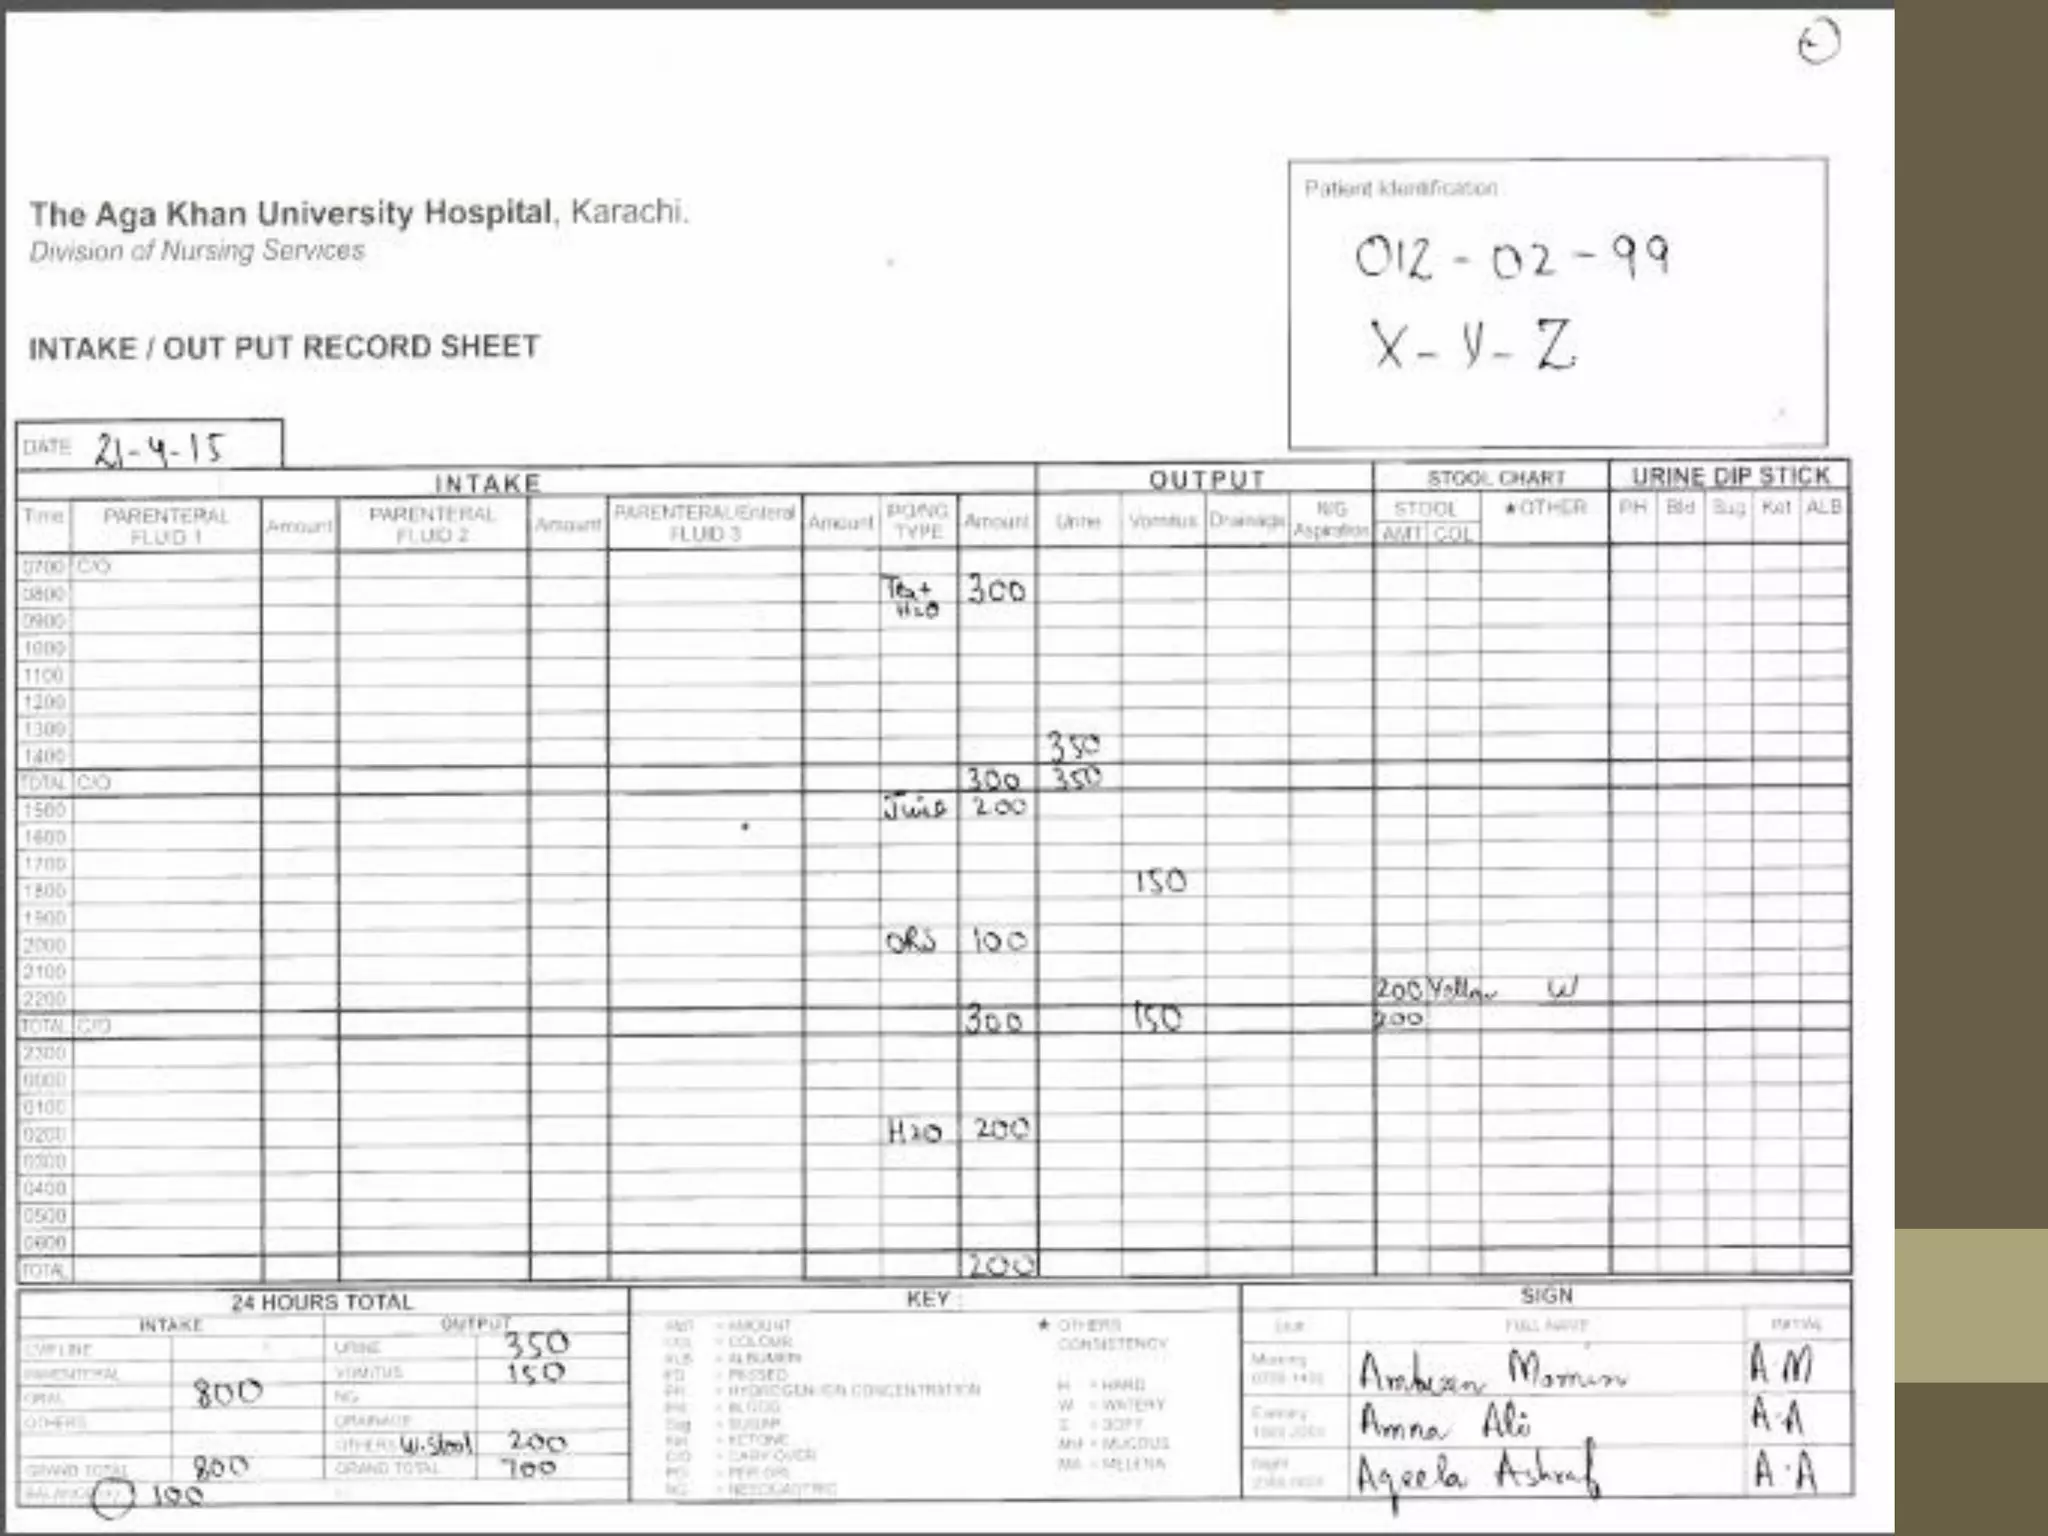 The Aga Khan University Hospital, Karachi.
Division of Nursing Services
Patient Identification
012-02-99
X-Y-Z
INTAKE / OUT PUT RECORD SHEET
DATE 21-4-15
INTAKE OUTPUT STOOL CHART URINE DIP STICK
Time PARENTERAL FLUID 1 Amount PARENTERAL FLUID 2 Amount PARENTERAL/Enteral FLUID 3 Amount PO/NG TYPE Amount Urine Vomitus Drainage N/G Aspiration STOOL AMT COL ★OTHER PH Bld Sug Ket ALB
0700 C/O
0800 Tea+ H2O 300
0900
1000
1100
1200
1300
1400 350
TOTAL C/O 300 350
1500 Juice 200
1600
1700
1800 150
1900
2000 ORS 100
2100
2200 200 Yellow W
TOTAL C/O 300 150 200
2300
0000
0100
0200 H2O 200
0300
0400
0500
0600
TOTAL 200
24 HOURS TOTAL
INTAKE OUTPUT
CVP LINE URINE 350
PARENTERAL VOMITUS 150
ORAL 800 NG
OTHERS DRAINAGE
OTHERS W.Stool 200
GRAND TOTAL 800 GRAND TOTAL 700
BALANCE 100
KEY
AMT = AMOUNT
COL = COLOUR
ALB = ALBUMEN
PS = PASSED
PH = HYDROGEN ION CONCENTRATION
Bld = BLOOD
Sug = SUGAR
Ket = KETONE
C/O = CARY OVER
PO = PER ORL
NG = NESOGASTRIC
★ OTHERS
CONSISTENCY
H = HARD
W = WATERY
S = SOFT
MU = MUCOUS
MA = MELENA
SIGN
FULL NAME INITIAL
Morning Ambreen Momin A.M
Evening Amna Ali A.A
Night Aqeela Ashraf A.A